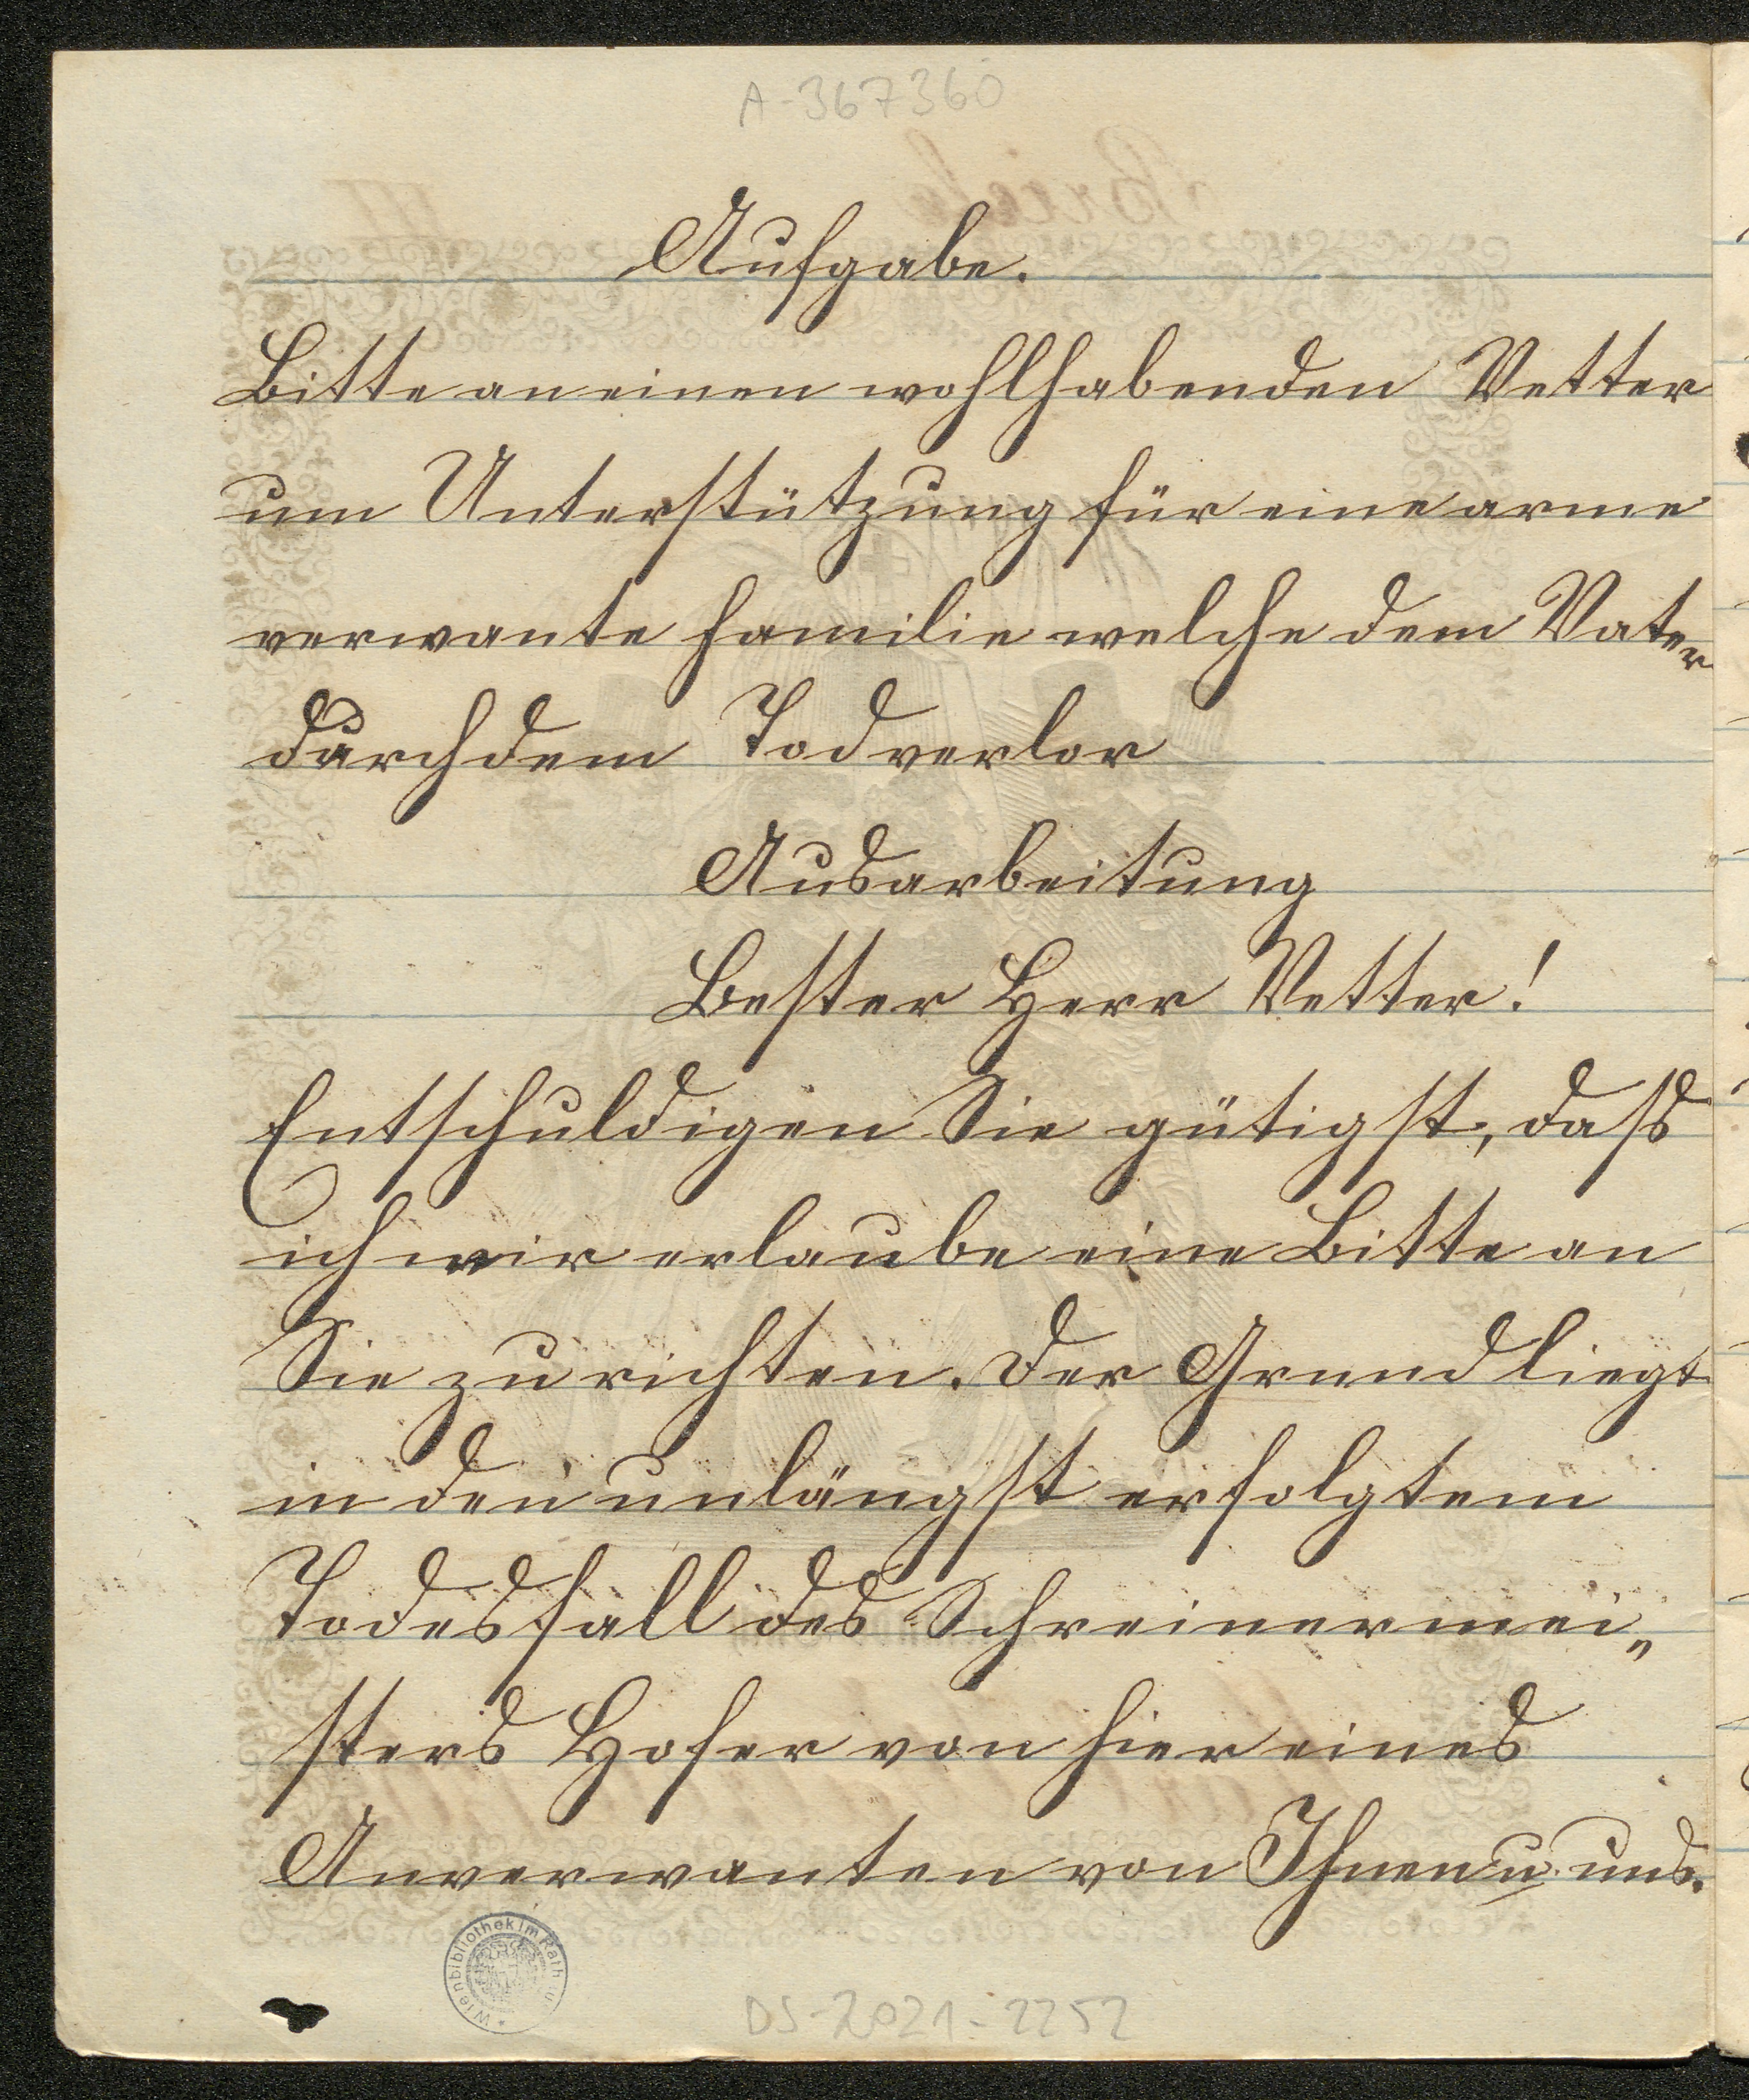 A-367360
Aufgabe.
Bitte an einen wohlhabenden Vetter
um Unterstützung für eine arme
verwante Familie welche dem Vater
durch dem Tod verlor
Ausarbeitung
Bester Herr Vetter!
Entschuldigen Sie gütigst, daß
ich mir erlaube eine Bitte an
Sie zu richten. Der Grund liegt
in den unlängst erfolgtem
Todesfall des Schreinermei„
sters Hofer von hier eines
Anverwanten von Ihnen u. uns.
Wienbibliothek im Rathaus
DS-2021-2252